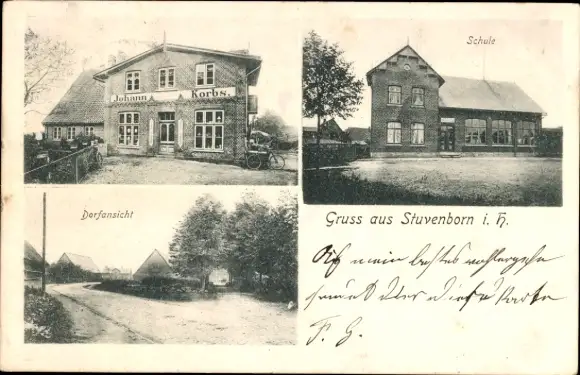 Johann Korbs.
Schule
Dorfansicht
Gruss aus Stuvenborn i. H.
Auf mein
diese Karte
F. G.